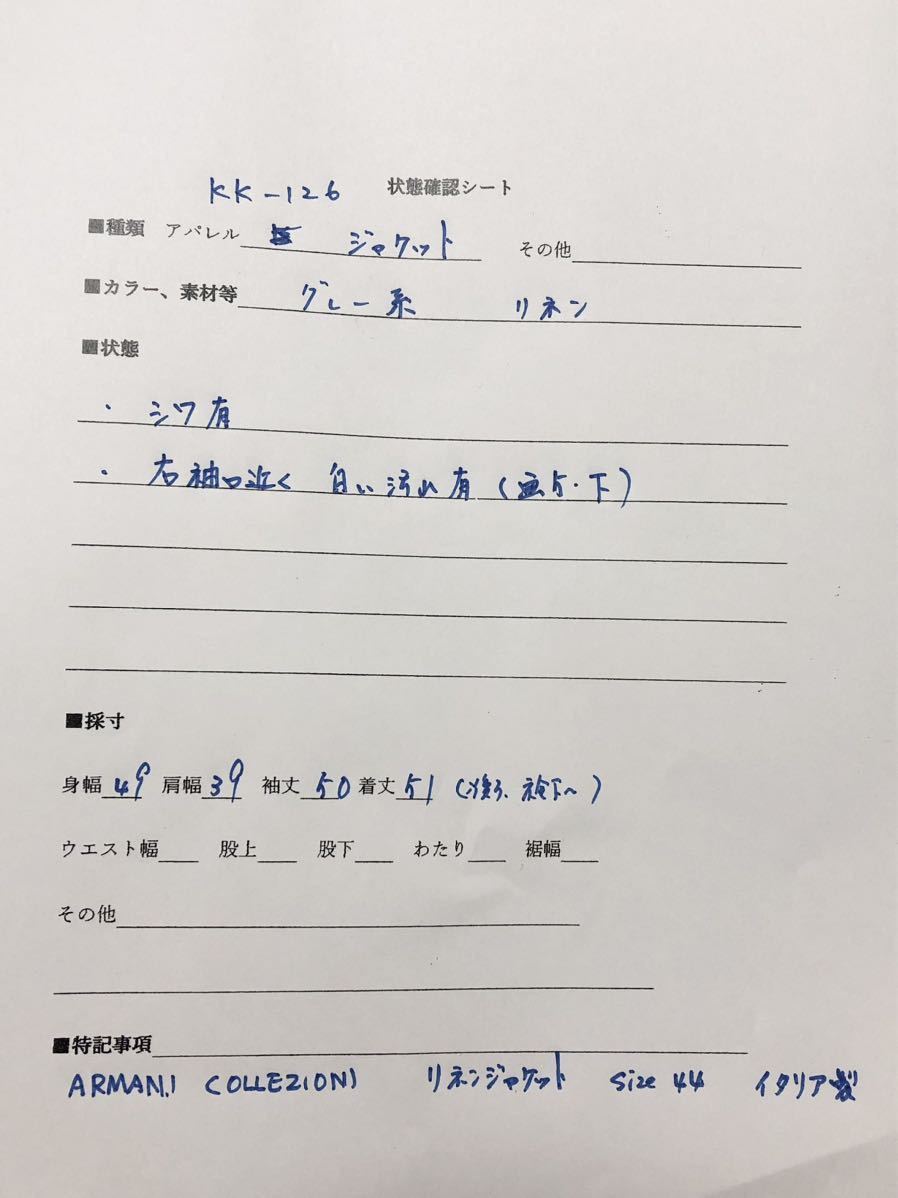 KK-126 状態確認シート
■種類 アパレル ジャケット その他
■カラー、素材等 グレー系 リネン
■状態
・シワ有
・右袖口近く 白い汚れ有(画5・下)
■採寸
身幅 49 肩幅 39 袖丈 50 着丈 51 (後ろ、衿下〜)
ウエスト幅 股上 股下 わたり 裾幅
その他
■特記事項
ARMANI COLLEZIONI リネンジャケット size 44 イタリア製